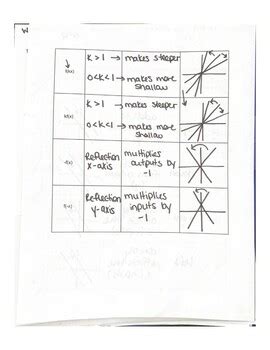 K > 1 → makes steeper
0<K<1 → makes more
shallow
kf(x)
K > 1 → makes steeper
0<K<1 → makes more
shallow
-f(x)
Reflection
x-axis
multiplies
outputs by
-1
f(-x)
Reflection
y-axis
multiplies
inputs by
-1